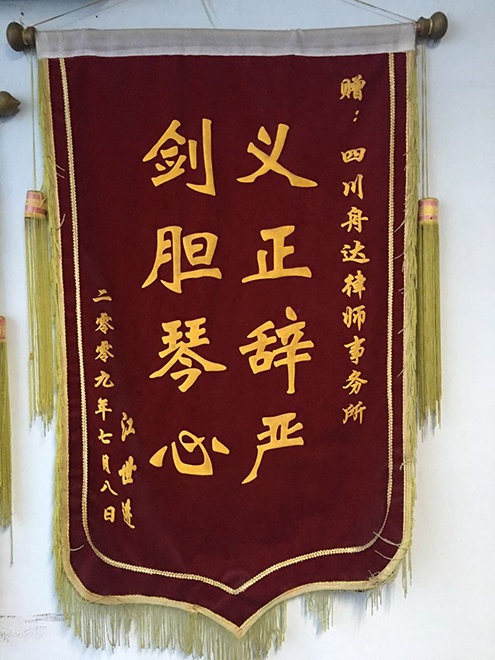 赠：四川舟达律师事务所
义正辞严
剑胆琴心
江世
二零零九年七月八日